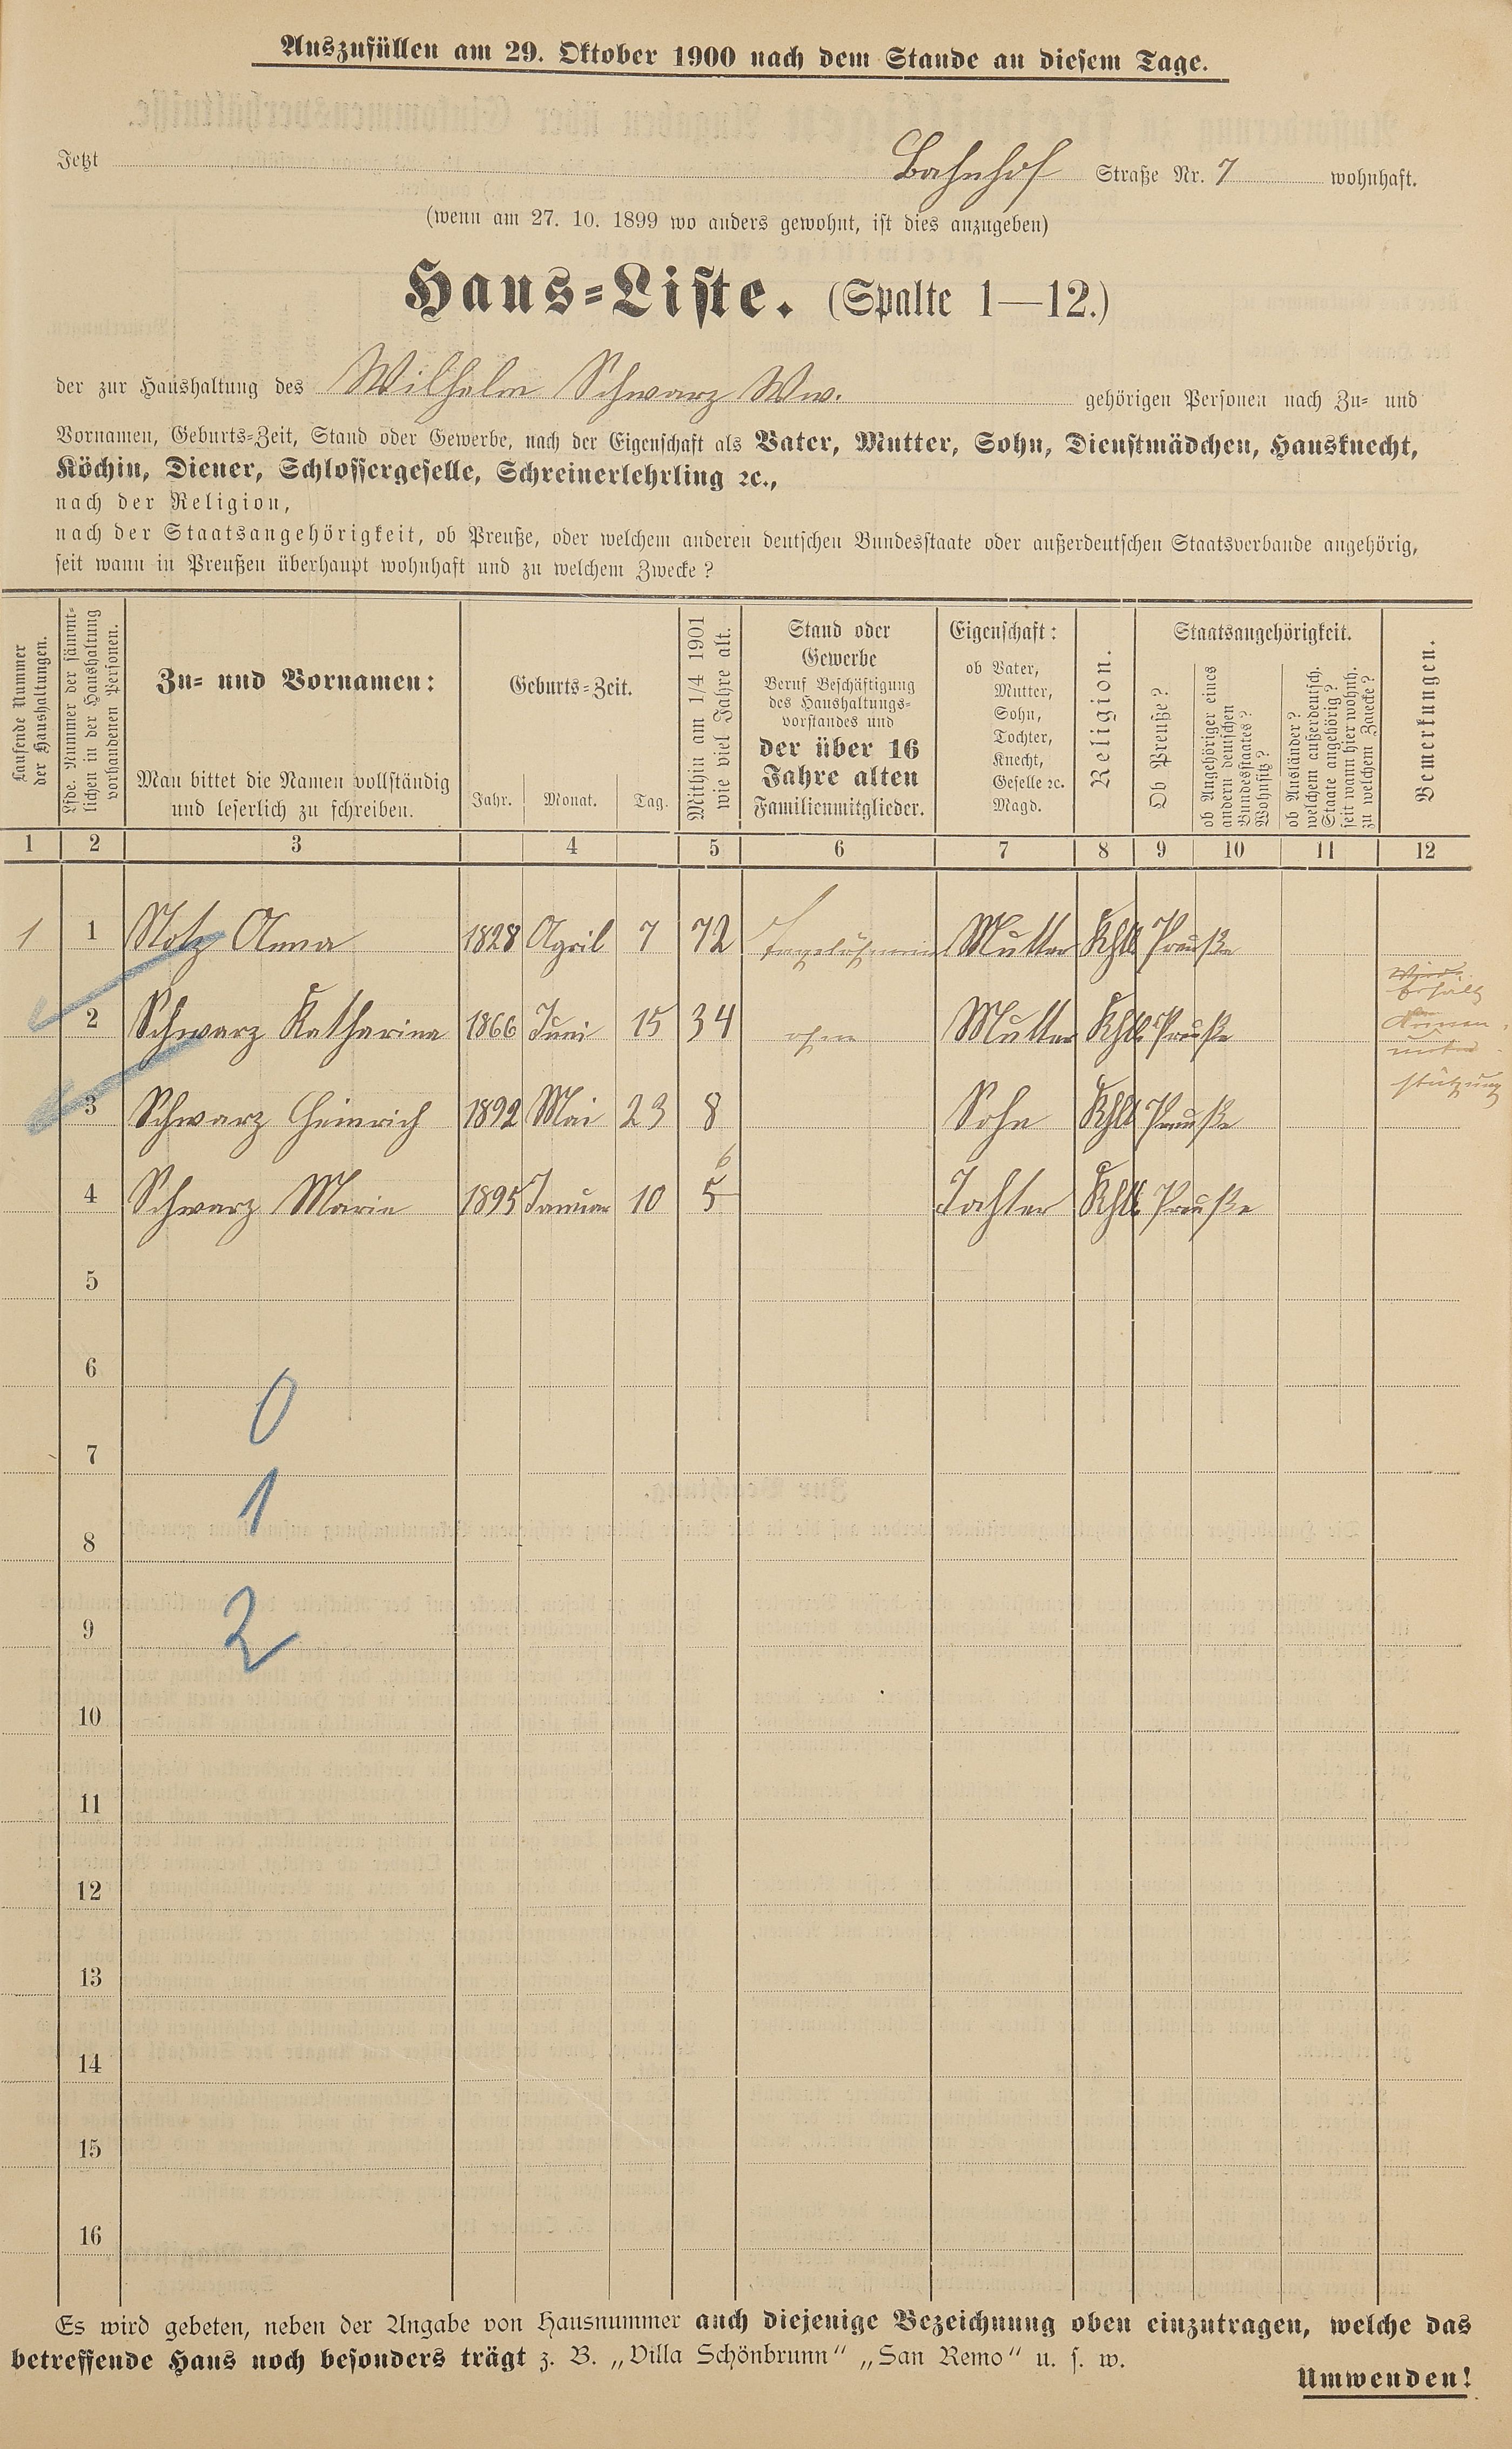 Auszufüllen am 29. Oktober 1900 nach dem Stande an diesem Tage.
Jetzt Bahnhof Straße Nr. 7 wohnhaft.
(wenn am 27. 10. 1899 wo anders gewohnt, ist dies anzugeben)
Haus-Liste. (Spalte 1—12.)
der zur Haushaltung des Wilhelm Schwarz Ww. gehörigen Personen nach Zu- und
Vornamen, Geburts-Zeit, Stand oder Gewerbe, nach der Eigenschaft als Vater, Mutter, Sohn, Dienstmädchen, Hausknecht,
Köchin, Diener, Schlossergeselle, Schreinerlehrling ꝛc.,
nach der Religion,
nach der Staatsangehörigkeit, ob Preuße, oder welchem anderen deutschen Bundesstaate oder außerdeutschen Staatsverbande angehörig,
seit wann in Preußen überhaupt wohnhaft und zu welchem Zwecke?
Laufende Nummer
der Haushaltungen.
Lfde. Nummer der sämmt-
lichen in der Haushaltung
vorhandenen Personen.
Zu- und Vornamen:
Man bittet die Namen vollständig
und leserlich zu schreiben.
Geburts-Zeit.
Jahr. Monat. Tag.
Mithin am 1/4 1901
wie viel Jahre alt.
Stand oder
Gewerbe
Beruf Beschäftigung
des Haushaltungs-
vorstandes und
der über 16
Jahre alten
Familienmitglieder.
Eigenschaft:
ob Vater,
Mutter,
Sohn,
Tochter,
Knecht,
Geselle ꝛc.
Magd.
Religion.
Staatsangehörigkeit.
Ob Preuße?
ob Angehöriger eines
andern deutschen
Bundesstaates?
Wohnsitz?
ob Ausländer?
welchem außerdeutsch.
Staate angehörig?
seit wann hier wohnh.
zu welchem Zwecke?
Bemerkungen.
1 2 3 4 5 6 7 8 9 10 11 12
1 1 Notz Anna 1828 April 7 72 Tagelöhnerin Mutter Kthl. Preuße
2 Schwarz Katharina 1866 Juni 15 34 ohne Mutter Kthl. Preuße
Erhält
Armen-
unter-
stützung
3 Schwarz Heinrich 1892 Mai 23 8 Sohn Kthl. Preuße
4 Schwarz Marie 1895 Januar 10 5 6 Tochter Kthl. Preuße
5
6
0
7
1
8
9
2
10
11
12
13
14
15
16
Es wird gebeten, neben der Angabe von Hausnummer auch diejenige Bezeichnung oben einzutragen, welche das
betreffende Haus noch besonders trägt z. B. „Villa Schönbrunn" „San Remo" u. s. w.
Umwenden!